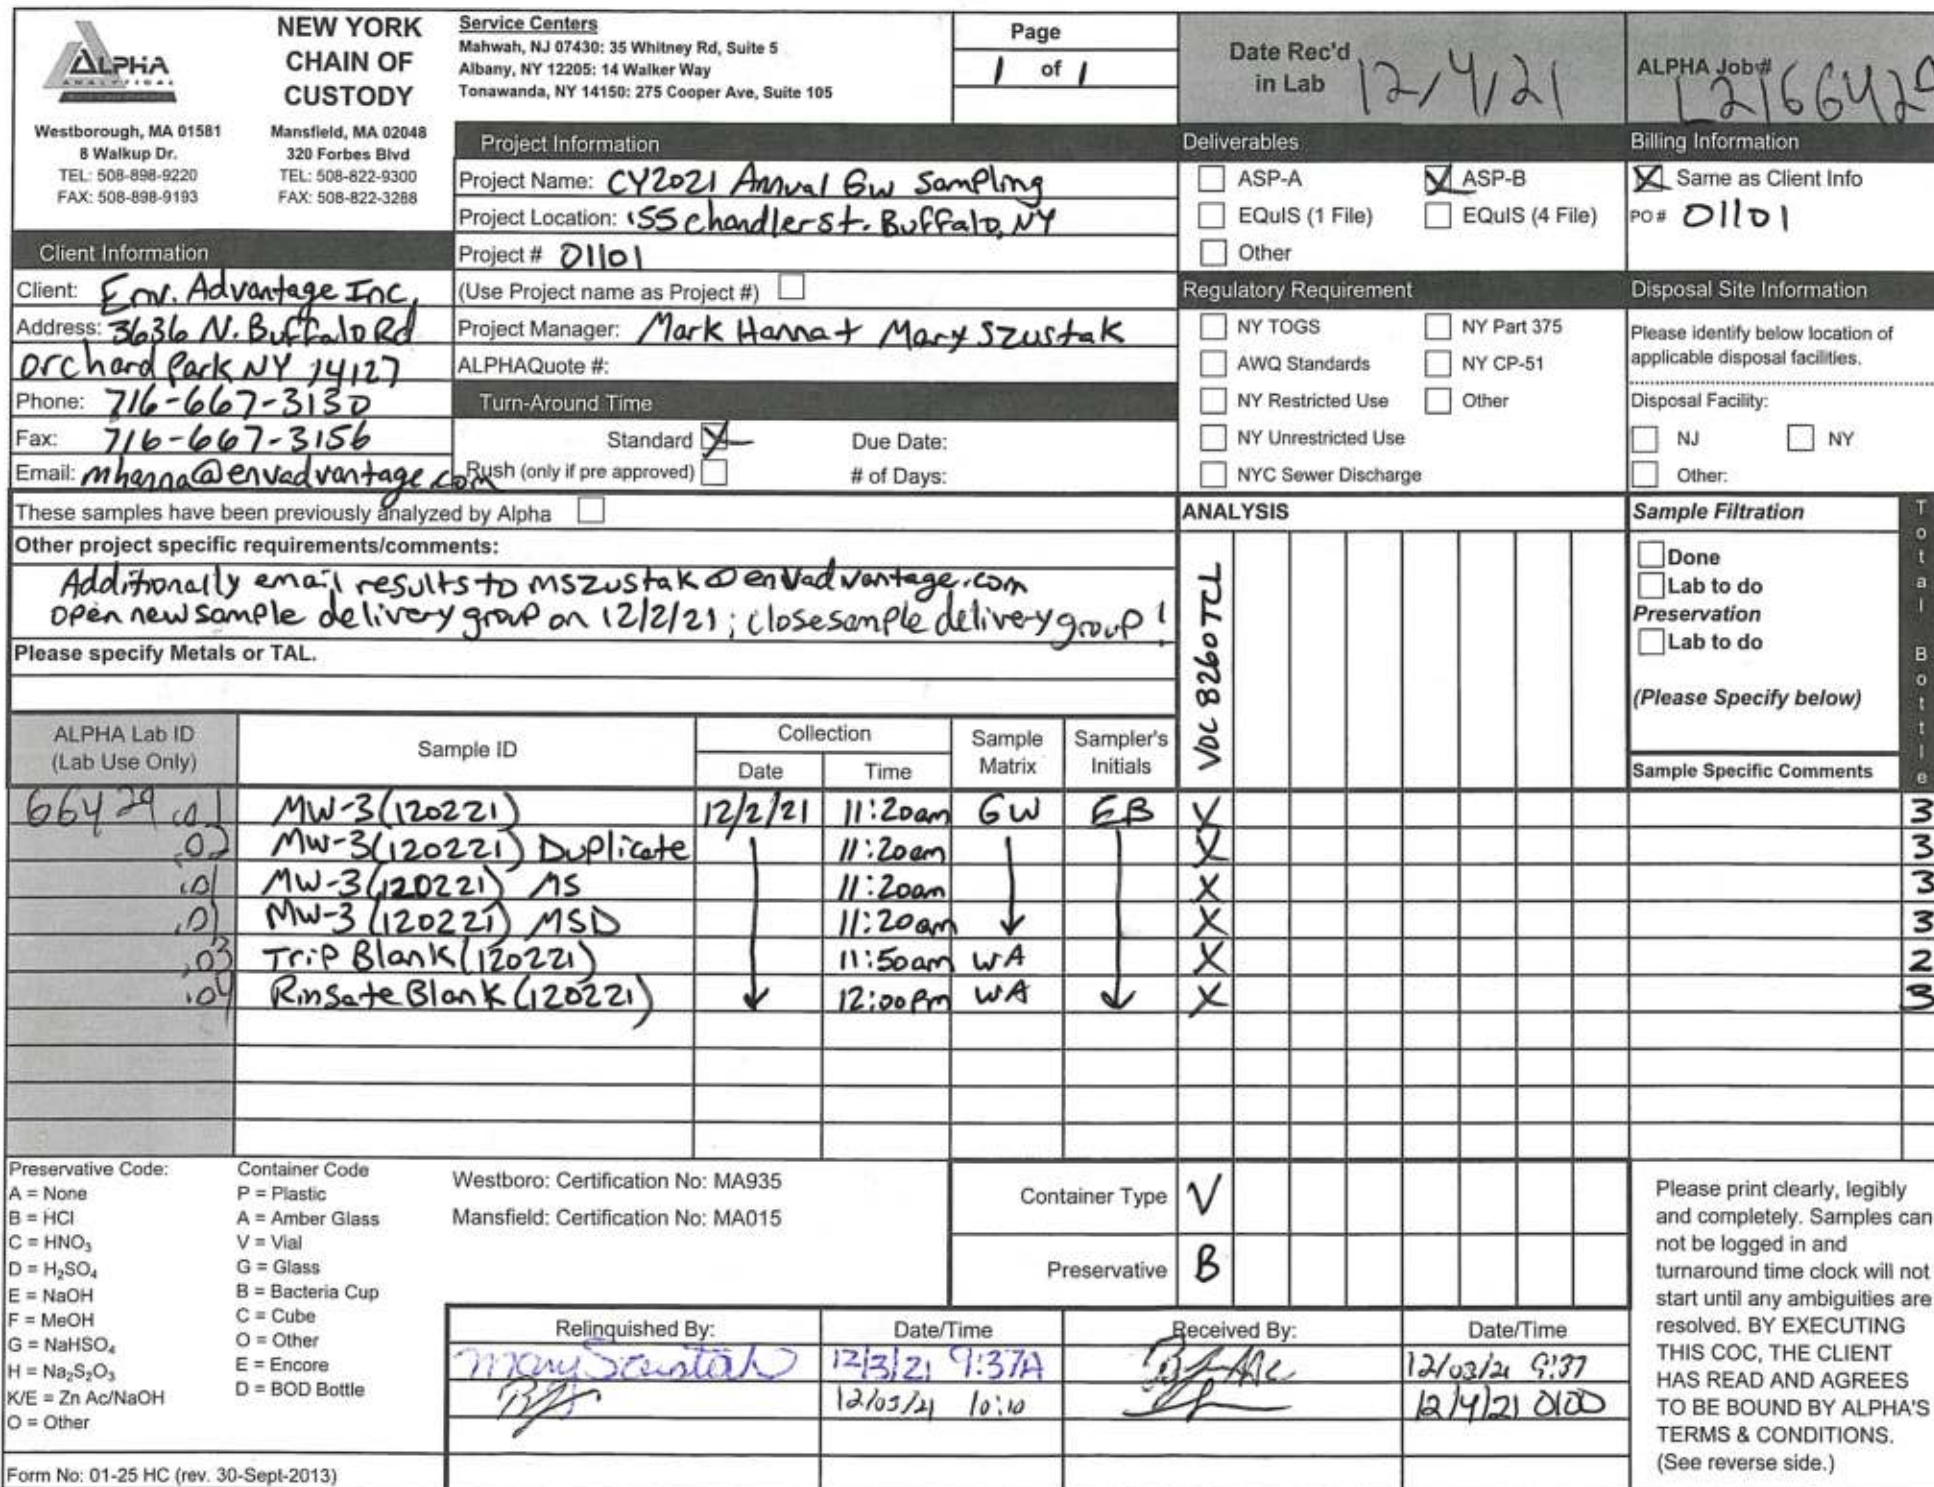 ALPHA
ANALYTICAL
NEW YORK
CHAIN OF
CUSTODY
Westborough, MA 01581
8 Walkup Dr.
TEL: 508-898-9220
FAX: 508-898-9193
Mansfield, MA 02048
320 Forbes Blvd
TEL: 508-822-9300
FAX: 508-822-3288
Service Centers
Mahwah, NJ 07430: 35 Whitney Rd, Suite 5
Albany, NY 12205: 14 Walker Way
Tonawanda, NY 14150: 275 Cooper Ave, Suite 105
Page
1 of 1
Date Rec'd
in Lab 12/4/21
ALPHA Job#
Client Information
Client: Env. Advantage Inc,
Address: 3636 N. Buffalo Rd
Orchard Park NY 14127
Phone: 716-667-3130
Fax: 716-667-3156
Email: mhanna@envadvantage.com
Project Information
Project Name: CY2021 Annual GW Sampling
Project Location: 155 Chandler St. Buffalo, NY
Project # 01101
(Use Project name as Project #)
Project Manager: Mark Hanna + Mary Szustak
ALPHAQuote #:
Turn-Around Time
Standard X Due Date:
Rush (only if pre approved) # of Days:
Deliverables
ASP-A X ASP-B
EQuIS (1 File) EQuIS (4 File)
Other
Regulatory Requirement
NY TOGS NY Part 375
AWQ Standards NY CP-51
NY Restricted Use Other
NY Unrestricted Use
NYC Sewer Discharge
Billing Information
X Same as Client Info
PO # 01101
Disposal Site Information
Please identify below location of
applicable disposal facilities.
Disposal Facility:
NJ NY
Other:
These samples have been previously analyzed by Alpha
Other project specific requirements/comments:
Additionally email results to mszustak@envadvantage.com
open new sample delivery group on 12/2/21; close sample delivery group!
Please specify Metals or TAL.
ANALYSIS
VOC 8260 TCL
Sample Filtration
Done
Lab to do
Preservation
Lab to do
(Please Specify below)
Total Bottle
ALPHA Lab ID
(Lab Use Only)
Sample ID
Collection
Date Time
Sample
Matrix
Sampler's
Initials
Sample Specific Comments
66429 .01 MW-3(120221) 12/2/21 11:20am GW EB X 3
.02 MW-3(120221) Duplicate 11:20am X 3
.01 MW-3(120221) MS 11:20am X 3
.01 MW-3(120221) MSD 11:20am X 3
.03 Trip Blank(120221) 11:50am WA X 2
.04 Rinsate Blank(120221) 12:00pm WA X 3
Preservative Code:
A = None
B = HCl
C = HNO₃
D = H₂SO₄
E = NaOH
F = MeOH
G = NaHSO₄
H = Na₂S₂O₃
K/E = Zn Ac/NaOH
O = Other
Container Code
P = Plastic
A = Amber Glass
V = Vial
G = Glass
B = Bacteria Cup
C = Cube
O = Other
E = Encore
D = BOD Bottle
Westboro: Certification No: MA935
Mansfield: Certification No: MA015
Container Type V
Preservative B
Relinquished By: Date/Time Received By: Date/Time
Mary Szustak 12/3/21 9:37A 12/03/21 9:37
12/03/21 10:10 12/4/21 0100
Please print clearly, legibly
and completely. Samples can
not be logged in and
turnaround time clock will not
start until any ambiguities are
resolved. BY EXECUTING
THIS COC, THE CLIENT
HAS READ AND AGREES
TO BE BOUND BY ALPHA'S
TERMS & CONDITIONS.
(See reverse side.)
Form No: 01-25 HC (rev. 30-Sept-2013)